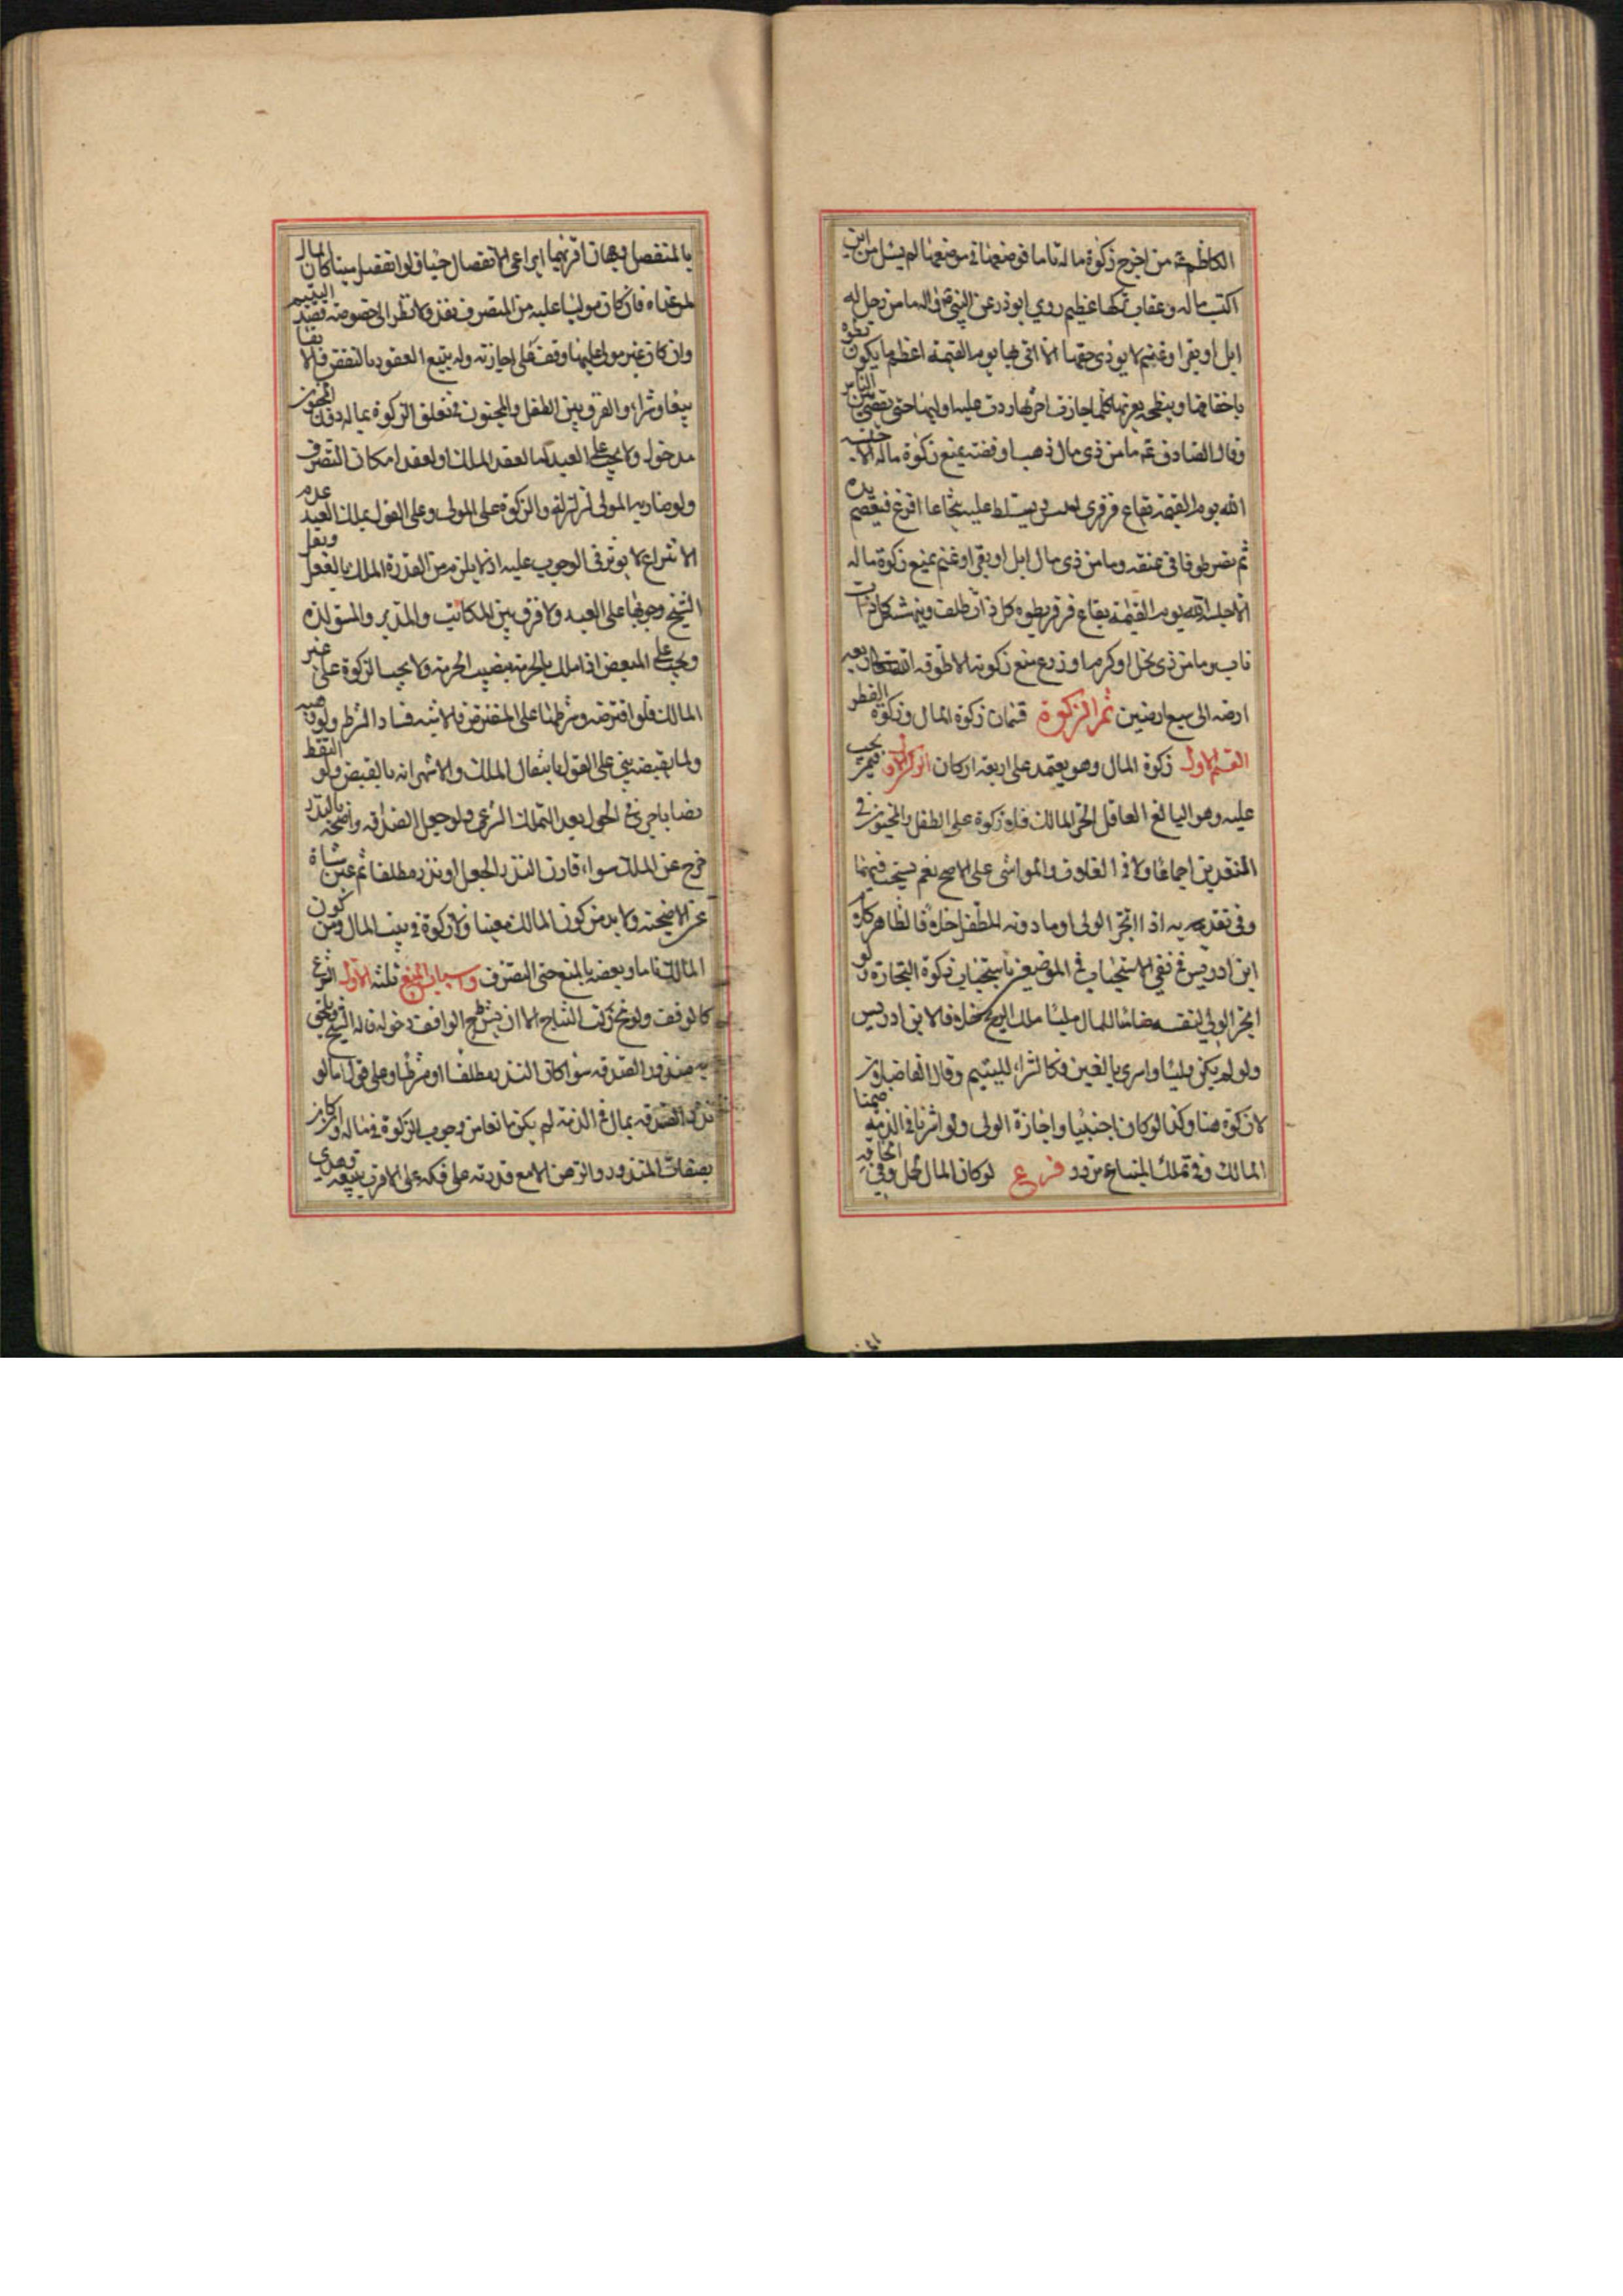 الكاظم ع من اخرج زكوة ماله تاما فوضعها في موضعها لم يسئل من اين
اكتسب ماله وعقاب تركها عظيم روي ابوذر عن النبي ص انه ما من رجل له
ابل او بقر او غنم لا يودى حقها الا اتى بها يوم القيمة اعظم ما يكون تطؤه
باخفافها وينطحه بقرنها كلما جازت اخرها ردت عليه اوليها حتى يقضى بين الناس
وقال الصادق ع ما من ذى مال ذهب او فضة يمنع زكوة ماله الا حبسه
الله يوم القيمة بقاع قرقر ويسلط عليه شجاعا اقرع فيقصم يده
ثم يصير طوقا في عنقه وما من ذى مال ابل او بقر او غنم يمنع زكوة ماله
الا حبسه الله يوم القيمة بقاع قرقر يطوه كل ذات ظلف وينهشه كل ذات
ناب وما من ذى نخل او كرم او زرع يمنع زكوته الا طوقه الله تعالى ريعه
ارضه الى سبع ارضين ثم الزكوة قسمان زكوة المال وزكوة الفطر
القسم الاول زكوة المال وهو يعتمد على اربعة اركان الركن الاول فيمن يجب
عليه وهو البالغ العاقل الحر المالك فلا زكوة على الطفل والمجنون في
النقدين اجماعا ولا في الغلات والمواشى على الاصح نعم يستحب فيهما
وفي نقديه اذا اتجر الولى او ماذونه للطفل خلافا لظاهر كلام
ابن ادريس في نفي الاستحباب في الموضعين باستحباب زكوة التجارة ولو
اتجر الولي لنفسه ضامنا للمال مليا ملك الربح خلافا لابن ادريس
ولو لم يكن مليا واشترى بالعين فكالشراء لليتيم وقال الفاضلان
لا زكوة هنا وكذا لو كان اجنبيا واجازة الولى ولو اشتريا في الذمة ضمنا
المالك وفي تملك المبتاع تردد فرع لو كان المال لحمل وفي الحاقه
بالمنفصل وجهان اقربهما ايراعى الانفصال حيا فلو انفصل ميتا كان المال
لمن عداه فان كان موليا عليه من المتصرف نفذ ولا نظر الى خصوصه قصد اليتيم
وان كان غير مولى عليها وقف على اجازته وله تتبع العقود بالنقض فلا بقا
بيعا وشراء والفرق بين الطفل والمجنون في تعلق الزكوة بماله دون المجنون
مدخول ولا يجب على العبد اما لعقد الملك او لعقد امكان التصرف
ولو ضاربه المولى لم تزل والزكوة على المولى وعلى القول بملك العبد عدم
الانتزاع لا يوثر في الوجوب عليه اذ لا يلزم من القدرة الملك بالفعل ونقل
الشيخ وجوبها على العبد ولا فرق بين المكاتب والمدبر والمستولدة
ويجب على المبعض اذا ملك بالحرية نصيب الحرية ولا يجب الزكوة على غير
المالك فلو اقترضه وشرطها على المقترض فالاشبه فساد الشرط ولو وهبه
ولما يقبضه بني على القول بانتقال الملك والاشهر انه بالقبض ولو التقط
نصابا جرى في الحول بعد التملك الشرعي ولو جعل الصدقة واضحية بالنذر
خرج عن الملك سواء قارن النذر الجعل او نذر مطلقا ثم عين شاة
عن الاضحية ولا بد من كون المالك معينا فلا زكوة في بيت المال ومن كون
المالك تاما ونعني به المنع حتى التصرف واسباب المنع ثلثة الاول الشرع
كالوقف ولو نمى زكت النتاج الا ان يشترط الواقف دخوله قاله الشيخ ويلحق
به منذور الصدقة سواء كان النذر مطلقا او مشروطا وعلى قول اما لو
نذر الصدقة بمال في الذمة لم يكن مانعا من وجوب الزكوة في ماله وان كان
بصفات المنذور والرهن الا مع قدرته على فكه على الاقرب ببيعه وتعدى